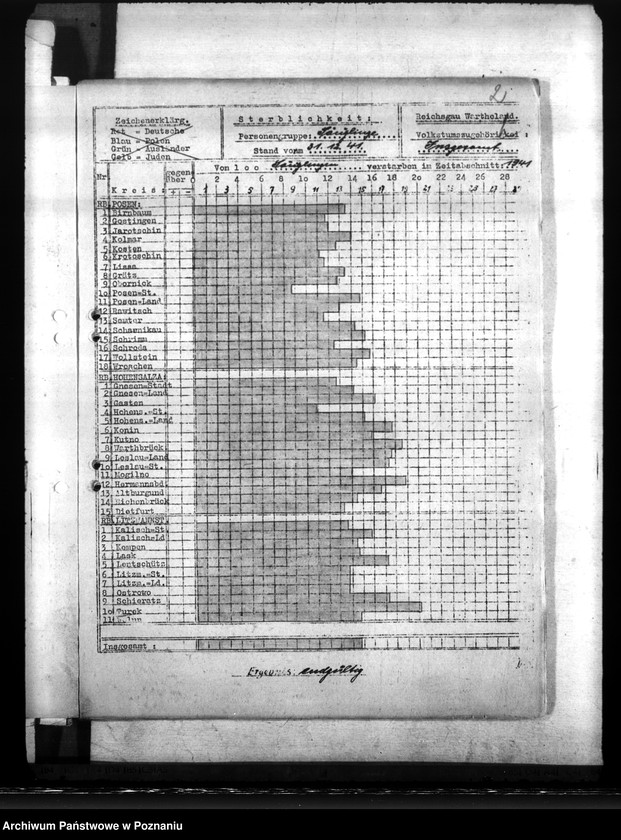 2
Zeichenerklärg.
Rot = Deutsche
Blau = Polen
Grün = Ausländer
Gelb = Juden
Sterblichkeit:
Personengruppe: Säuglinge
Stand vom 31.12.41.
Reichsgau Wartheland.
Volkstumszugehörigkeit:
Insgesamt
Nr. Kreis:
gegen
über 0
+ -
Von 100 Säuglingen verstarben im Zeitabschnitt: 1941
2 4 6 8 10 12 14 16 18 20 22 24 26 28
1 3 5 7 9 11 13 15 17 19 21
RB. POSEN:
1 Birnbaum
2 Gostingen
3 Jarotschin
4 Kolmar
5 Kosten
6 Krotoschin
7 Lissa
8 Grätz
9 Obornick
10 Posen-St.
11 Posen-Land
12 Rawitsch
13 Samter
14 Scharnikau
15 Schrimm
16 Schroda
17 Wollstein
18 Wreschen
RB. HOHENSALZA:
1 Gnesen-Stadt
2 Gnesen-Land
3 Gasten
4 Hohens.-St.
5 Hohens.-Land
6 Konin
7 Kutno
8 Warthbrück.
9 Leslau-Land
10 Leslau-St.
11 Mogilno
12 Hermannsbd.
13 Altburgund
14 Eichenbrück
15 Dietfurt
RB. LITZMANNST.
1 Kalisch-St.
2 Kalisch-Ld
3 Kempen
4 Lask
5 Lentschütz
6 Litzm.-St.
7 Litzm.-Ld.
8 Ostrowo
9 Schieratz
10 Turek
11
Insgesamt :
Ergebnis: endgültig
Archiwum Państwowe w Poznaniu